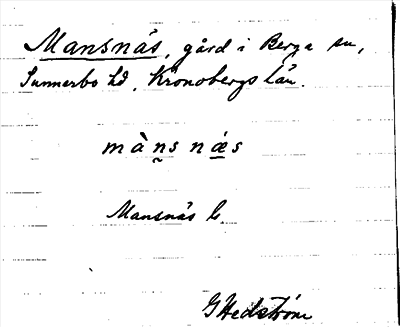 Mansnäs, gård i Berga sn,
Sunnerbo hd, Kronobergs län.
màn̰s nǽ̱s
Mansnäs
G Hedström